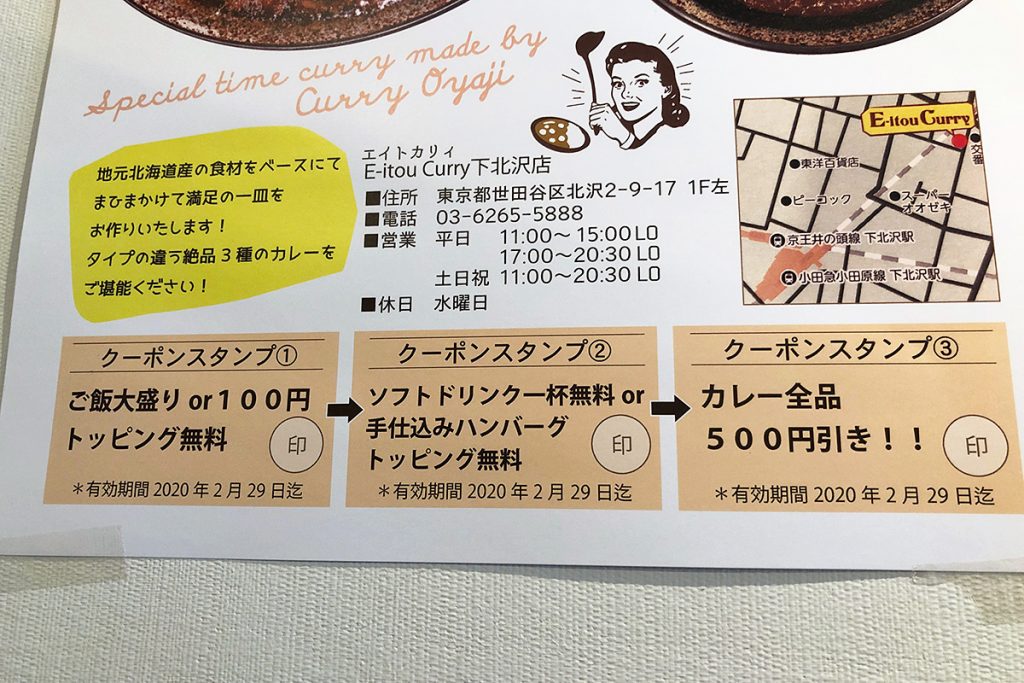 Special time curry made by
Curry Oyaji
地元北海道産の食材をベースにて
まひまかけて満足の一皿を
お作りいたします！
タイプの違う絶品3種のカレーを
ご堪能ください！
エイトカリィ
E-itou Curry下北沢店
■住所 東京都世田谷区北沢2-9-17 1F左
■電話 03-6265-5888
■営業 平日 11:00〜15:00LO
17:00〜20:30LO
土日祝 11:00〜20:30LO
■休日 水曜日
E-itou Curry
交番
東洋百貨店
ピーコック
スーパー
オオゼキ
京王井の頭線 下北沢駅
小田急小田原線 下北沢駅
クーポンスタンプ①
ご飯大盛りor１００円
トッピング無料
印
＊有効期間2020年2月29日迄
クーポンスタンプ②
ソフトドリンク一杯無料or
手仕込みハンバーグ
トッピング無料
印
＊有効期間2020年2月29日迄
クーポンスタンプ③
カレー全品
５００円引き！！
印
＊有効期間2020年2月29日迄